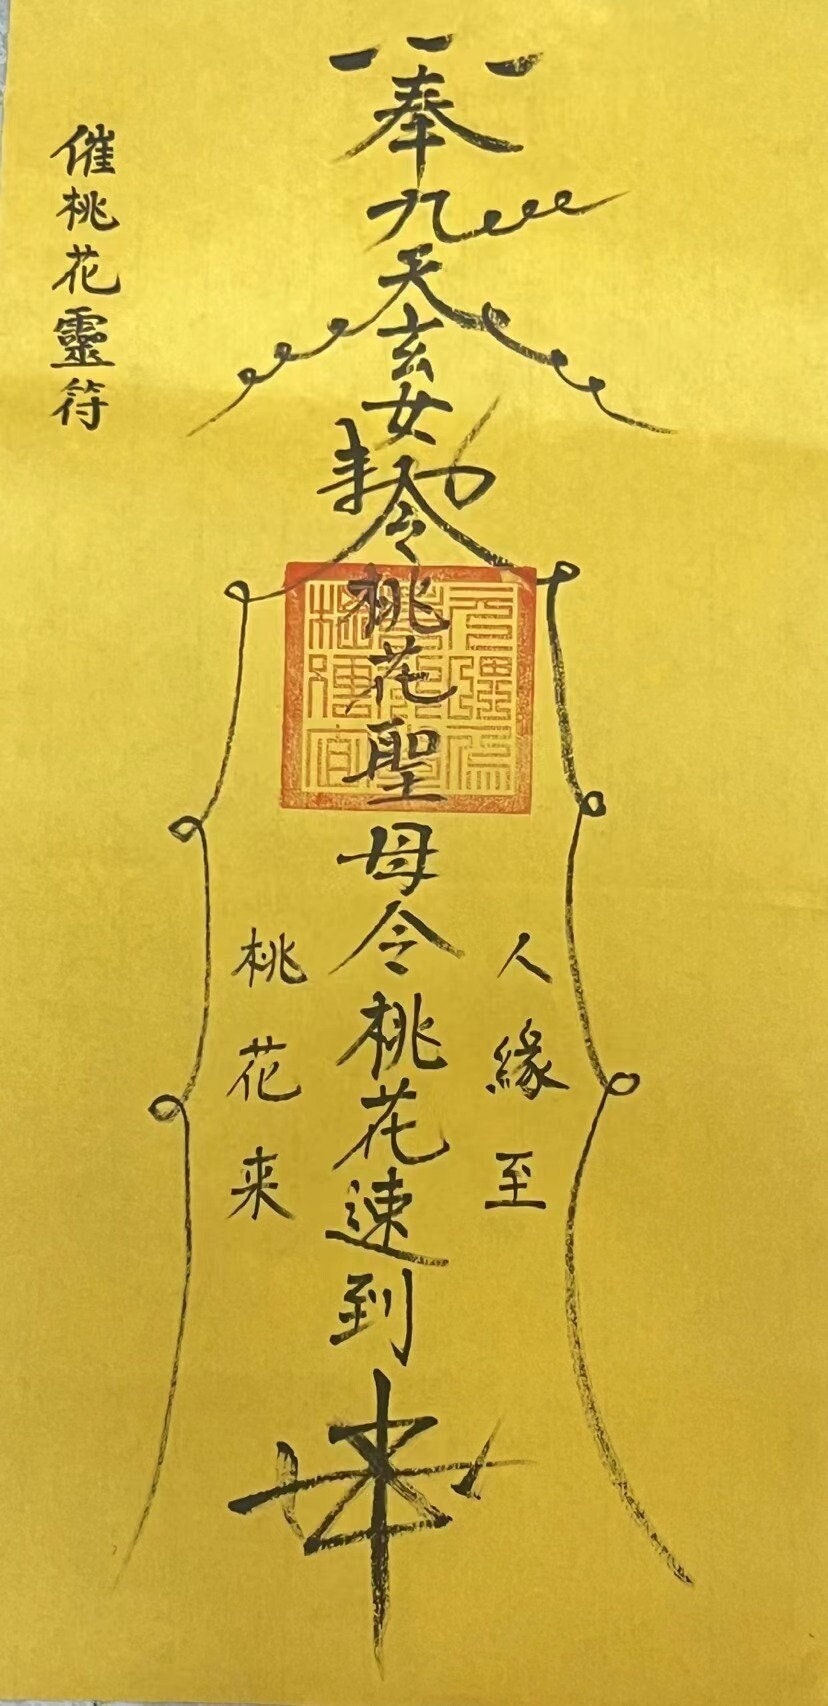 催桃花靈符
奉九天玄女勅令桃花聖母令桃花速到
人緣至
桃花来